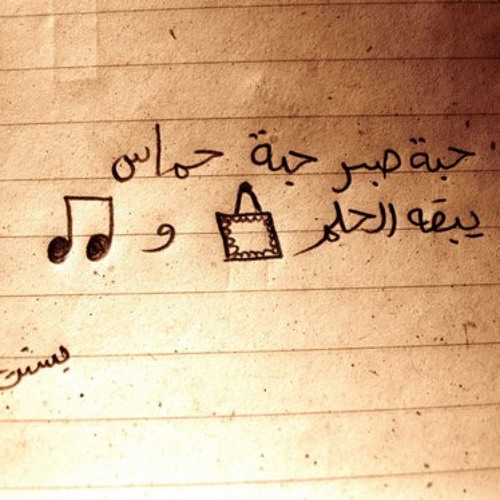 حبة صبر حبة حماس
يبقه الحلم و